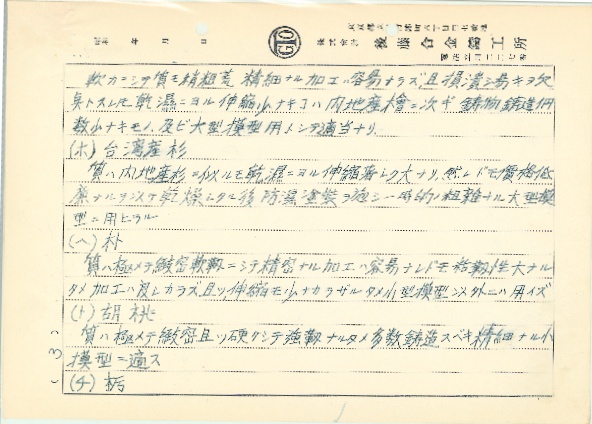 昭和 年 月 日
GTO
株式会社 後藤合金鋳工所
軟カニシテ質モ稍粗荒 精細ナル加工ハ容易ナラズ且損潰シ易キヲ欠
点トスレモ乾湿ニヨル伸縮小ナキコハ内地産檜ニ次ギ鋳物鋳造個
数小ナキモノ、及ビ大型模型用トシテ適当ナリ、
(ホ)台湾産杉
質ハ内地産杉ニ似ルモ乾湿ニヨル伸縮著シク大ナリ、然レドモ價格低
廉ナル 乾燥シタル後防湿塗装ヲ施シ一時的ノ粗雑ナル大型模
型ニ用ヒラル
(ヘ)朴
質ハ極メテ緻密軟靱ニシテ精密ナル加工ハ容易ナレドモ粘靱性大ナル
タメ加工ハ良シカラズ且ツ伸縮モ小ナカラザルタメ小型模型以外ニハ用イズ
(ト)胡桃
質ハ極メテ緻密且ツ硬クシテ強靱ナルタメ多数鋳造スベキ精細ナル小
模型ニ適ス
(チ)栃
(3)